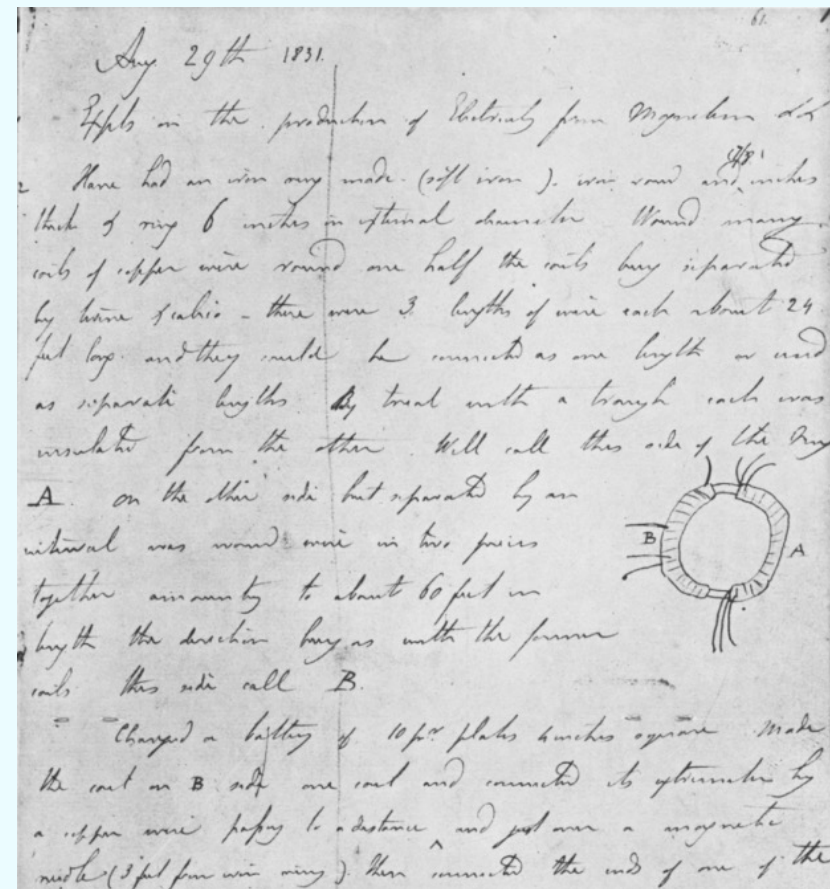 61.
Aug 29th 1831.
Expts on the production of Electricity from Magnetism &c &c
Have had an iron ring made (soft iron), iron round and 7/8 inches
thick & ring 6 inches in external diameter Wound many
coils of copper wire round one half the coils being separated
by twine & calico - there were 3 lengths of wire each about 24
feet long and they could be connected as one length or used
as separate lengths By trial with a trough each was
insulated from the other Will call this side of the ring
A on the other side but separated by an
interval was wound wire in two pieces
together amounting to about 60 feet in
length the direction being as with the former
coils this side call B.
B
A
Charged a battery of 10 pr plates 4 inches square Made
the coil on B side one coil and connected its extremities by
a copper wire passing to a distance and just over a magnetic
needle (3 feet from iron ring). Then connected the ends of one of the